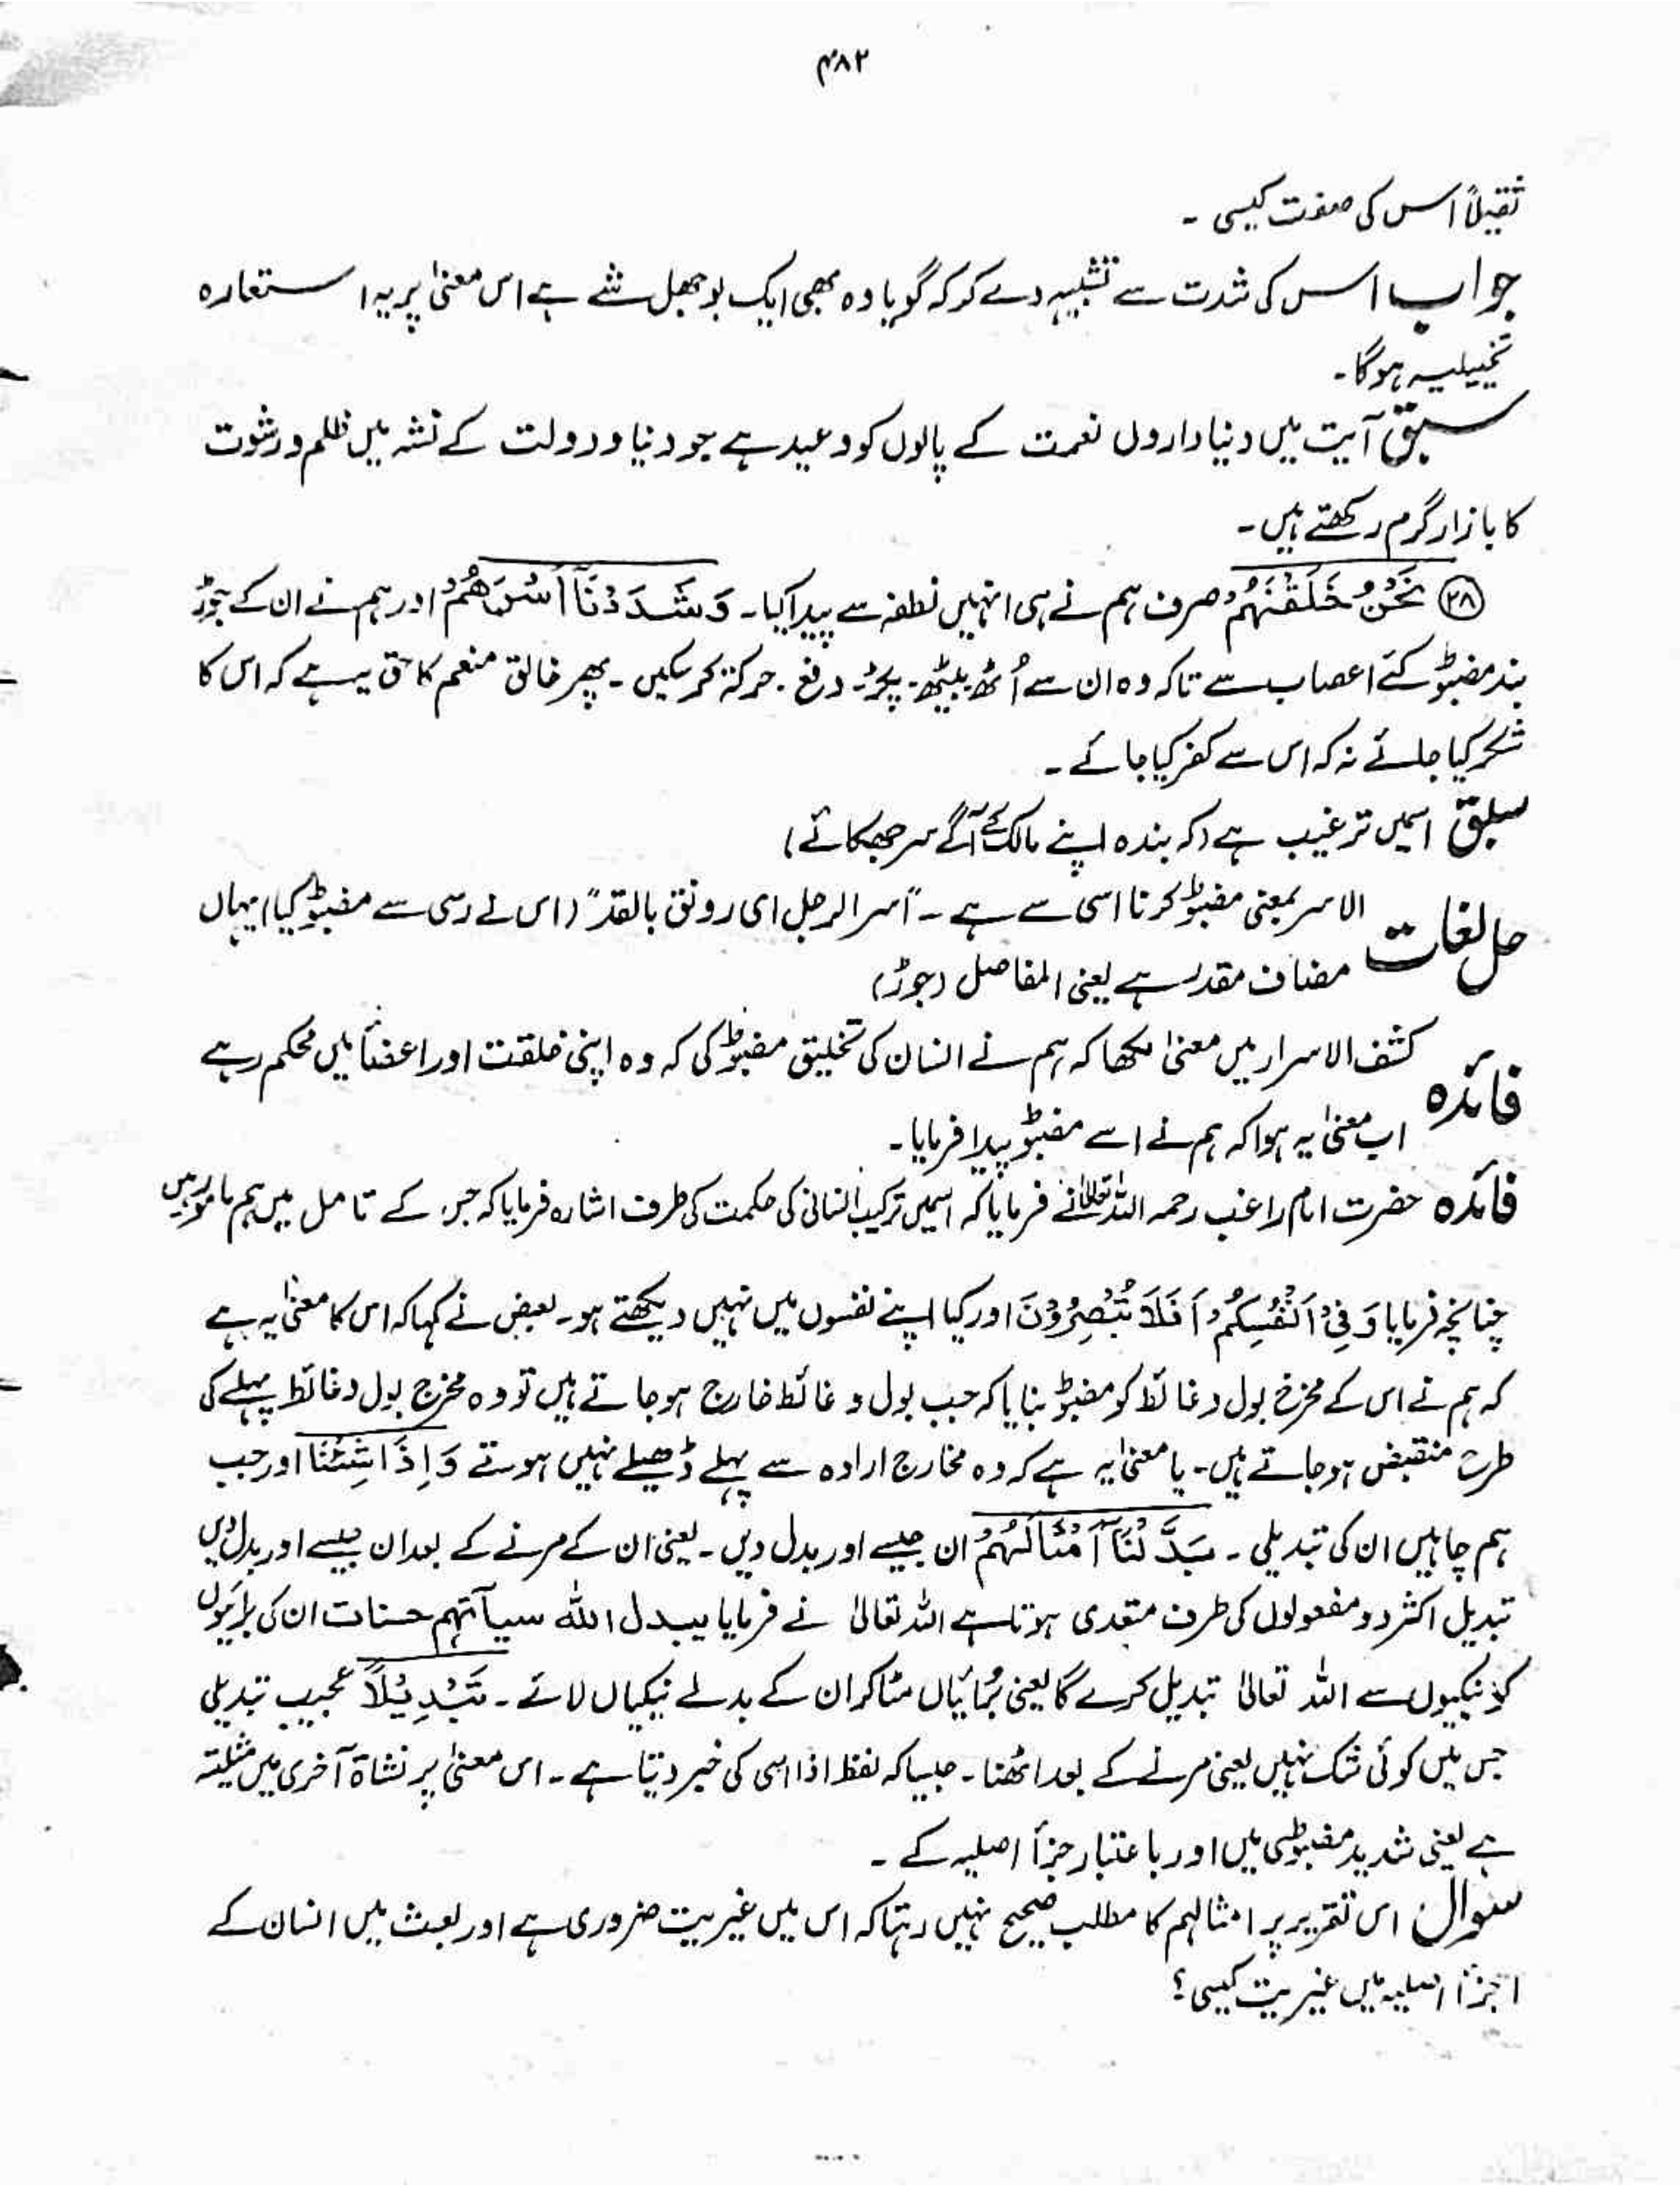 ۴۸۲
ثقیلاً اس کی صفت کیسی ۔
جواب اس کی شدت سے تشبیہ دے کر کہ گویا وہ بھی ایک بوجھل شے ہے اس معنیٰ پر یہ استعارہ
تخییلیہ ہوگا ۔
سبق آیت میں دنیاداروں نعمت کے پالوں کو وعید ہے جو دنیا و دولت کے نشہ میں ظلم و رشوت
کا بازار گرم رکھتے ہیں ۔
۲۸ نَحْنُ خَلَقْنٰہُمْ صرف ہم نے ہی انہیں نطفہ سے پیدا کیا ۔ وَشَدَدْنَآ اَسْرَھُمْ اور ہم نے ان کے جوڑ
بند مضبوط کئے اعصاب سے تاکہ وہ ان سے اُٹھ بیٹھ ۔ پکڑ ۔ دفع ۔ حرکۃ کر سکیں ۔ پھر خالق منعم کا حق یہ ہے کہ اس کا
شکر کیا جائے نہ کہ اس سے کفر کیا جائے ۔
سبق اسمیں ترغیب ہے (کہ بندہ اپنے مالک کے آگے سر جھکائے)
حل لغات الاسر بمعنی مضبوط کرنا اسی سے ہے ۔ "اسر الرجل ای روثق بالقد" (اس نے رسی سے مضبوط کیا) یہاں
مضاف مقدر ہے یعنی المفاصل (جوڑ)
فائدہ کشف الاسرار میں معنیٰ لکھا کہ ہم نے انسان کی تخلیق مضبوط کی کہ وہ اپنی خلقت اور اعضأ میں محکم رہے
اب معنیٰ یہ ہوا کہ ہم نے اسے مضبوط پیدا فرمایا ۔
فائدہ حضرت امام راغب رحمہ اللہ تعالیٰ نے فرمایا کہ اسمیں ترکیب انسانی کی حکمت کی طرف اشارہ فرمایا کہ جس کے تامل میں ہم مامور ہیں
چنانچہ فرمایا وَفِیْٓ اَنْفُسِکُمْ اَفَلَا تُبْصِرُوْنَ اور کیا اپنے نفسوں میں نہیں دیکھتے ہو ۔ بعض نے کہا کہ اس کا معنیٰ یہ ہے
کہ ہم نے اس کے مخرج بول و غائط کو مضبوط بنایا کہ جب بول و غائط خارج ہو جاتے ہیں تو وہ مخرج بول و غائط پہلے کی
طرح منقبض ہو جاتے ہیں ۔ یا معنیٰ یہ ہے کہ وہ مخارج ارادہ سے پہلے ڈھیلے نہیں ہوتے وَاِذَا شِئْنَا اور جب
ہم چاہیں ان کی تبدیلی ۔ بَدَّلْنَآ اَمْثَالَہُمْ ان جیسے اور بدل دیں ۔ یعنی ان کے مرنے کے بعد ان جیسے اور بدل دیں
تبدیل اکثر دو مفعولوں کی طرف متعدی ہوتا ہے اللہ تعالیٰ نے فرمایا یبدل اللہ سیآتہم حسنات ان کی برائیوں
کو نیکیوں سے اللہ تعالیٰ تبدیل کرے گا یعنی بُرائیاں مٹا کر ان کے بدلے نیکیاں لائے ۔ تَبْدِیْلًا عجیب تبدیلی
جس میں کوئی شک نہیں یعنی مرنے کے بعد اٹھنا ۔ جیسا کہ لفظ اذا اسی کی خبر دیتا ہے ۔ اس معنیٰ پر نشاۃ آخری میں مثلیتہ
ہے یعنی شدید مضبوطی میں اور باعتبار جزأ اصلیہ کے ۔
سوال اس تقریر پر امثالہم کا مطلب صحیح نہیں رہتا کہ اس میں غیریت ضروری ہے اور بعث میں انسان کے
اجزأ اصلیہ میں غیریت کیسی ؟